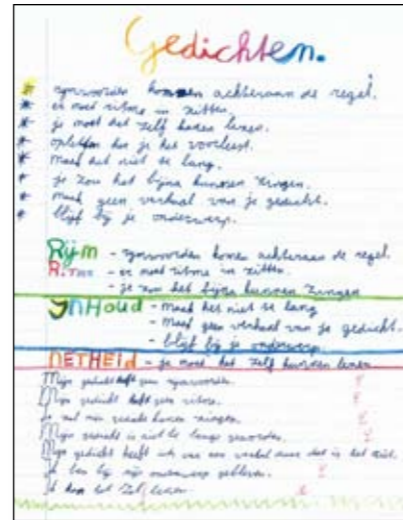 Gedichten.
* rijmwoorden komen achteraan de regel.
* er moet ritme in zitten.
* je moet het zelf kunnen lezen.
* opletten hoe je het voorleest.
* maak het niet te lang.
* je zou het bijna kunnen zingen.
* maak geen verhaal van je gedicht.
* blijf bij je onderwerp.
Rijm - rijmwoorden komen achteraan de regel.
Ritme - er moet ritme in zitten.
- je zou het bijna kunnen zingen
inHoud - maak het niet te lang
- maak geen verhaal van je gedicht.
- blijf bij je onderwerp.
NETHEID - je moet het zelf kunnen lezen
Mijn gedicht heeft geen rijmwoorden.
Mijn gedicht heeft geen ritme.
Je zal mijn gedicht kunnen zingen.
Mijn gedicht is niet te lang geworden.
Mijn gedicht heeft van een verhaal dat is het niet.
ik ben bij mijn onderwerp gebleven.
ik kan het zelf lezen